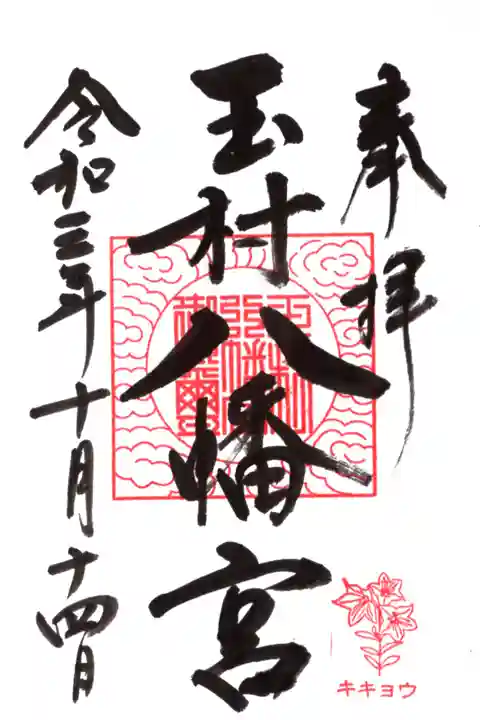 奉拝
玉村八幡宮
令和三年十月十四日
キキョウ